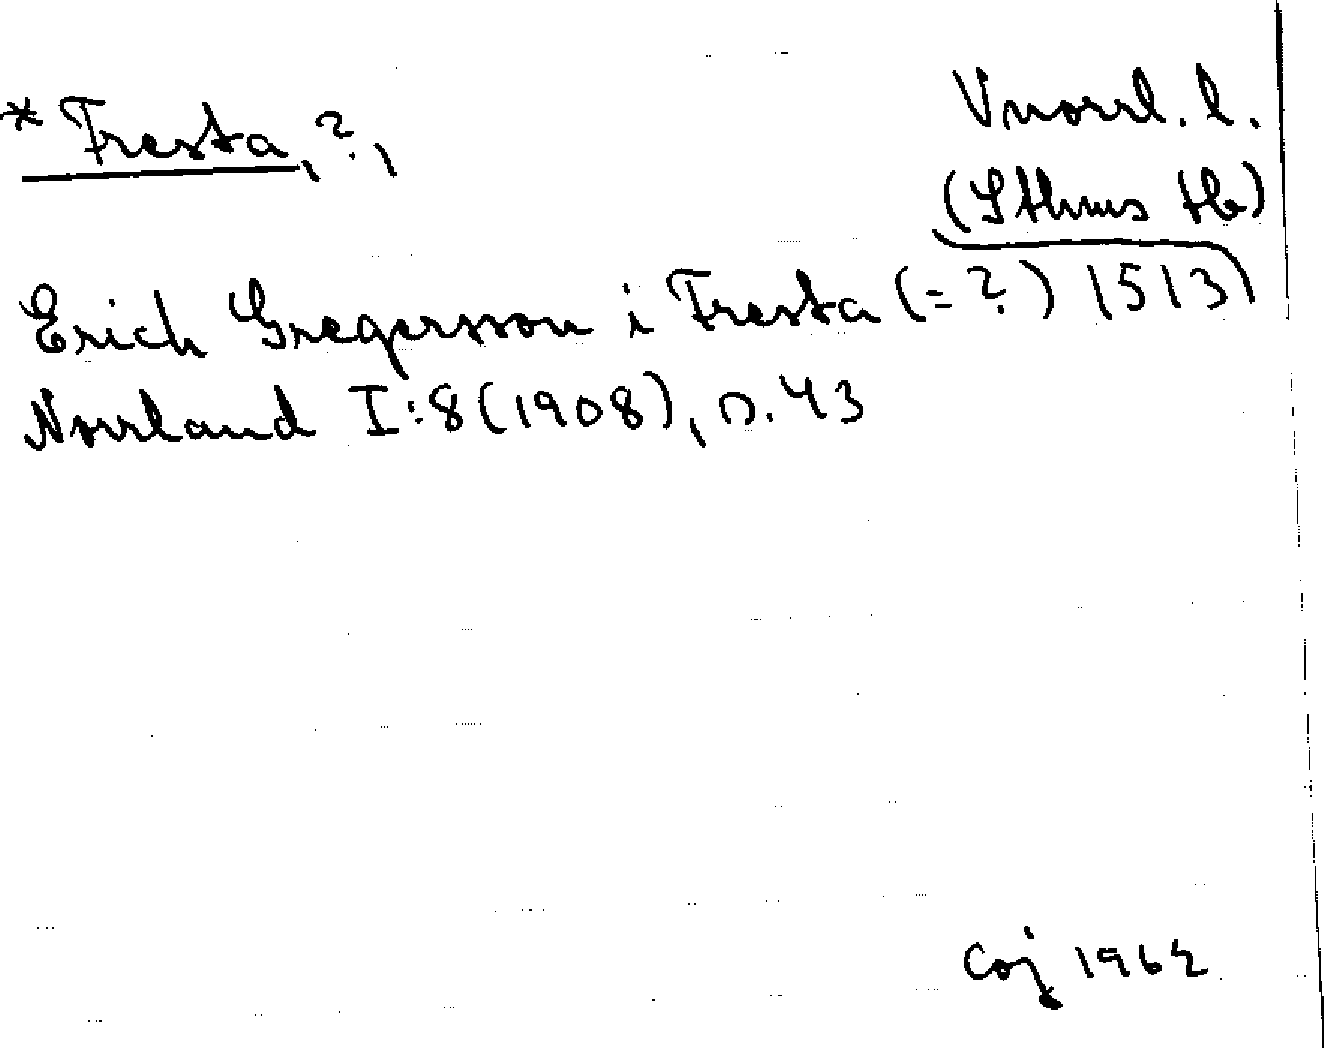 * Fresta, ?,
Vnorrl. l.
(Sthms tb)
Erich Gregersson i Fresta (=?) 1513
Norrland I:8 (1908), s. 43
Coj 1962